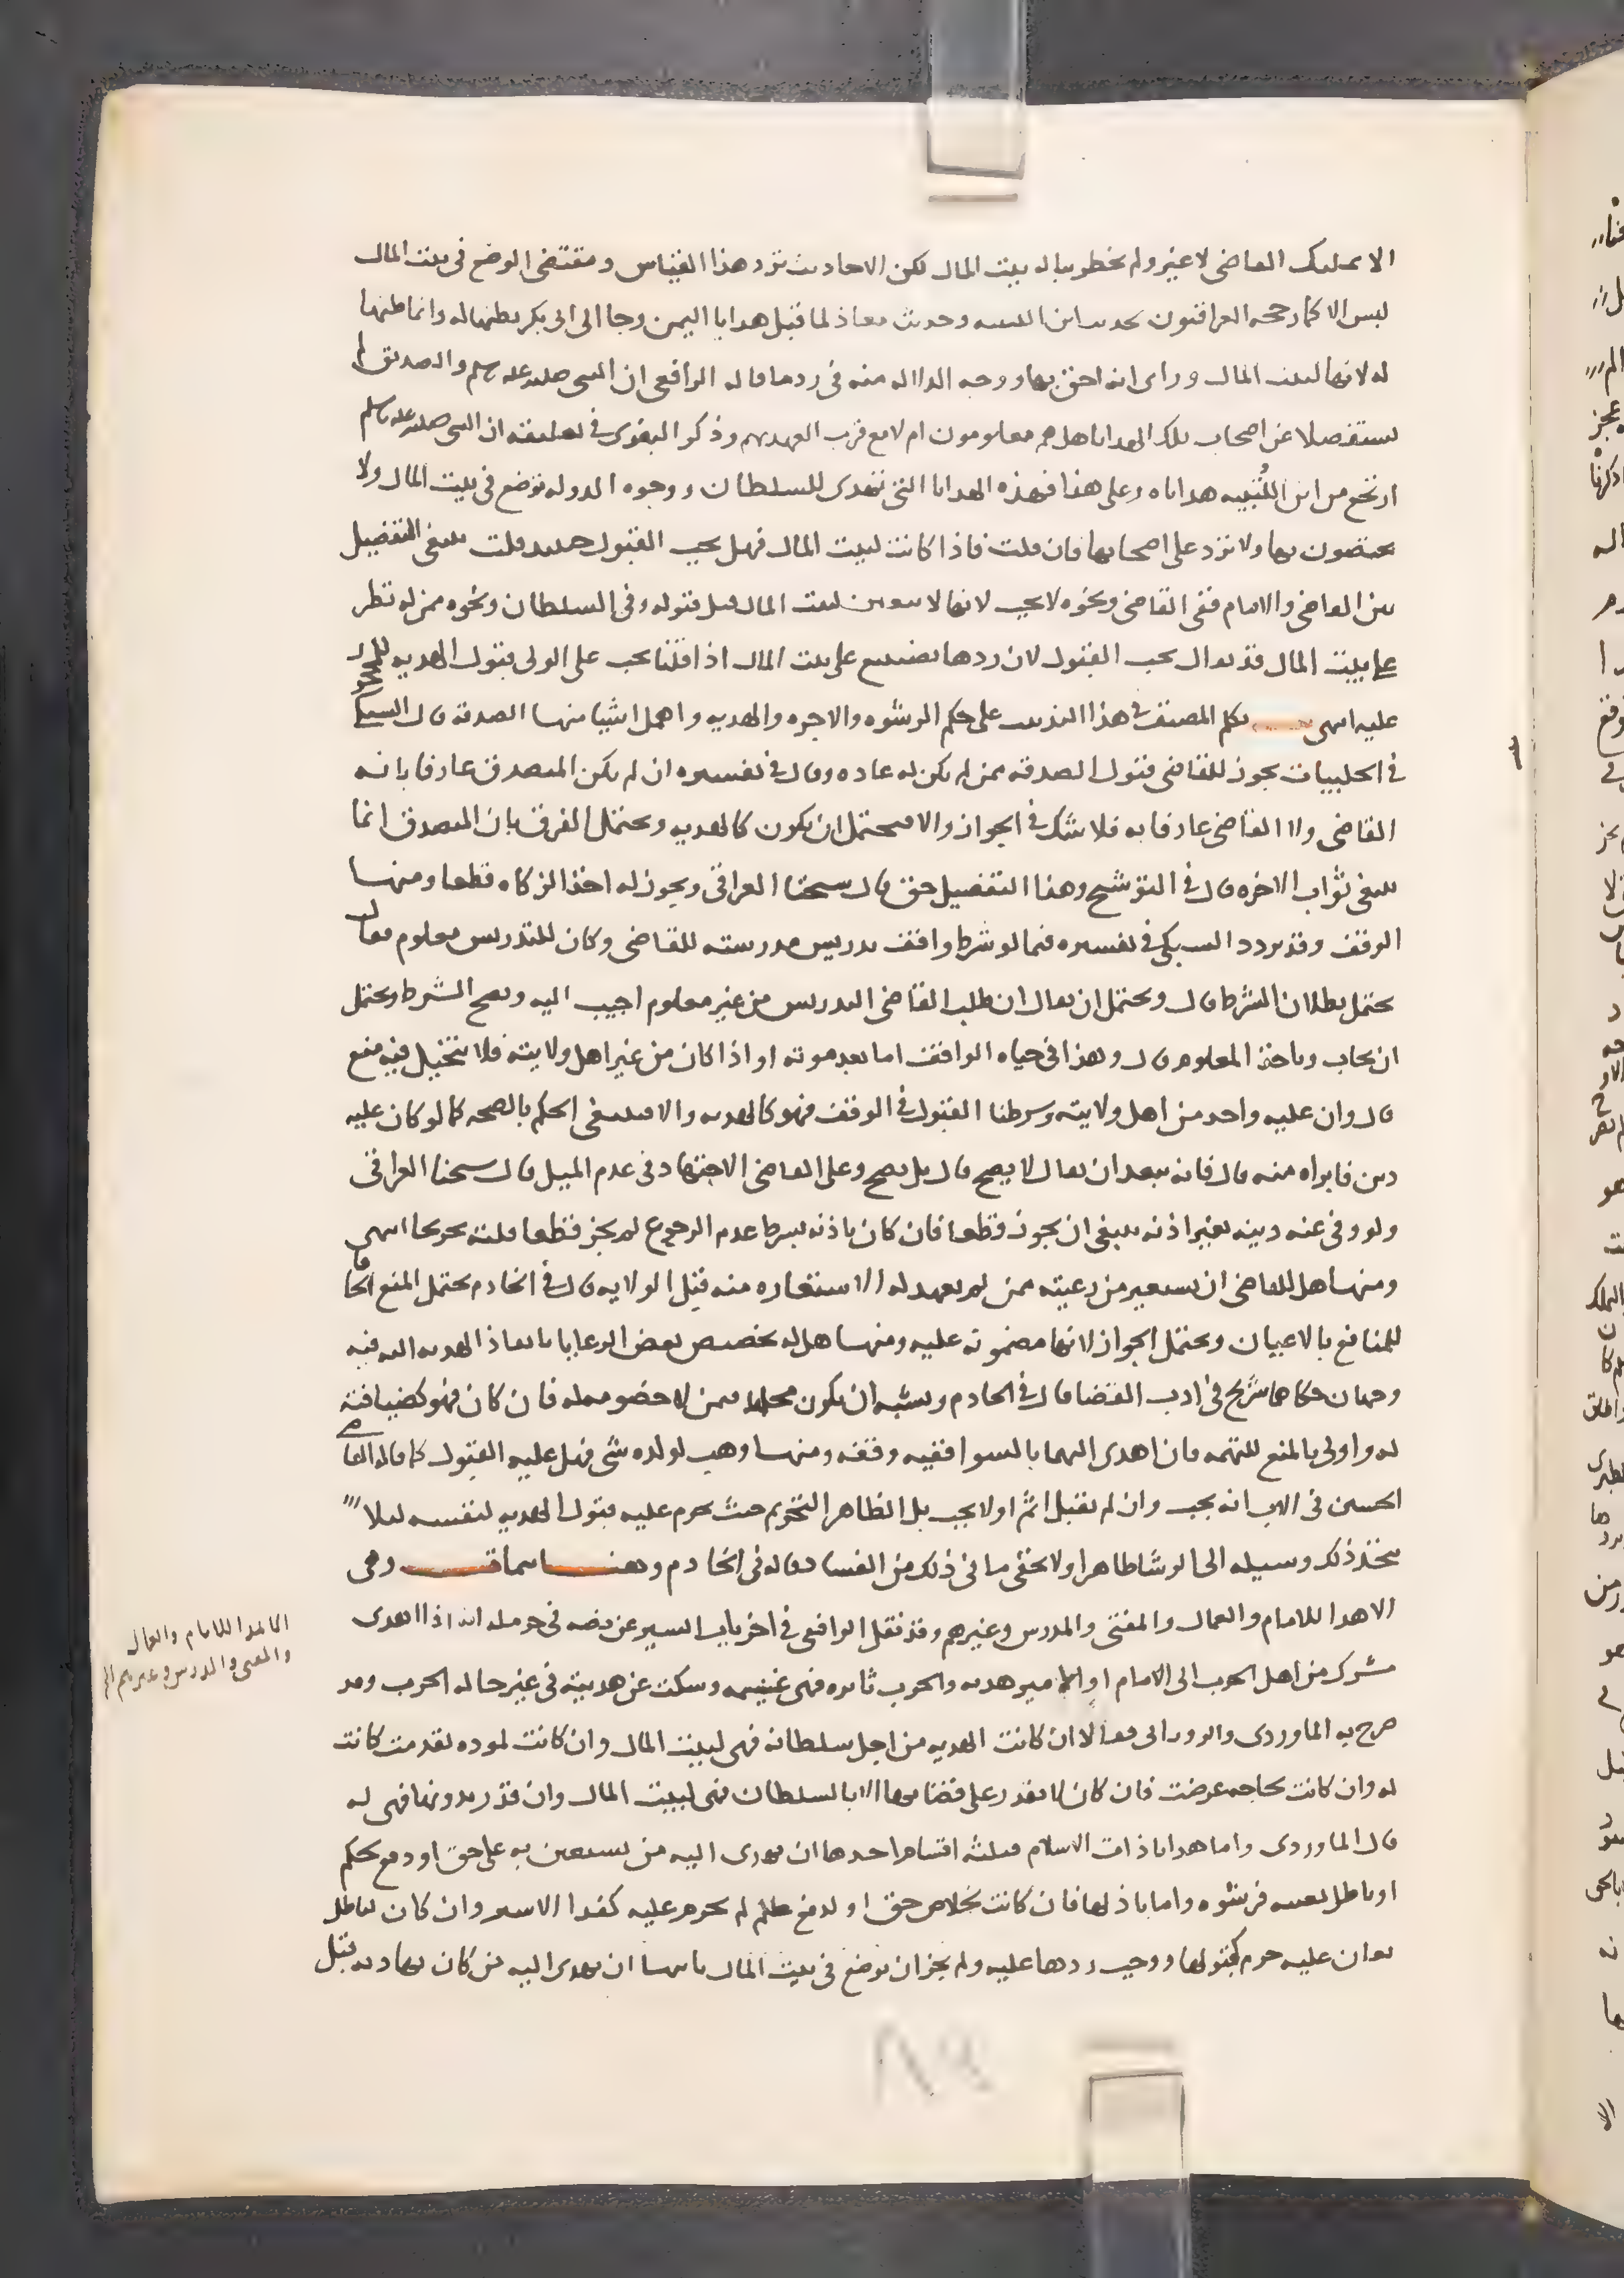 الا تمليك القاضى لا غير ولم يخطر بباله بيت المال لكن الاحاديث ترد هذا القياس ومقتضى الوضع فى بيت المال
ليس الا كما رجحه العراقيون بحديث ابن اللتبيه وحديث معاذ لما قبل هدايا اليمن وجا الى ابى بكر بطنها له وانما
له لانها لبيت المال وراى انه احق بها ووجه الدلاله منه فى ردها قاله الرافعى ان النبى صلى الله عليه وسلم والصديق لم
يستفصلا عن اصحاب تلك الهدايا هل هم معلومون ام لا مع قرب العهد بهم وذكر البغوى فى تعليقه ان النبى صلى الله عليه وسلم
ارتجع من ابن اللُتبيه هداياه وعلى هذا فهذه الهدايا التى تهدى للسلطان ووجوه الدوله توضع فى بيت المال ولا
يختصون بها ولا ترد على اصحابها فان قلت فاذا كانت لبيت المال فهل يجب القبول حينيذ قلت ينبغى التفضيل
بين القاضى والامام ففى القاضى ونحوه لا يجب لانها لا تتعين لبيت المال قبل قبوله وفى السلطان ونحوه ممن له نظر
على بيت المال قد يقال يجب القبول لان ردها تضييع على بيت المال اذا قلنا يجب على الولى قبول الهديه للمحجور
عليه انتهى تكلم المصنف فى هذا التذنيب على حكم الرشوه والاجره والهديه واهمل اشيا منها الصدقه قال السبكى
فى الحلبيات يجوز للقاضى قبول الصدقه ممن لم يكن له عاده وقال فى تفسيره ان لم يكن المتصدق عارفا بانه
القاضى ولا القاضى عارفا به فلا شك فى الجواز والا فيحتمل ان يكون كالهديه ويحتمل الفرق بان المتصدق انما
يبتغى ثواب الاخره قال فى التوشيح وهذا التفضيل حق قال شيخنا العراقى ويجوز له اخذ الزكاه قطعا ومنها
الوقف وقد تردد السبكى فى تفسيره فيما لو شرط واقف تدريس مدرسته للقاضى وكان للتدريس معلوم فقال
يحتمل بطلان الشرط قال ويحتمل ان يقال ان طلب القاضى التدريس من غير معلوم اجيب اليه ويصح الشرط ويحتمل
ان يجاب وياخذ المعلوم قال وهذا فى حياه الواقف اما بعد موته او اذا كان من غير اهل ولايته فلا يتخيل فيه منع
قال وان عليه واحد من اهل ولايته وشرطنا القبول فى الوقف فهو كالهديه والا فينبغى الحكم بالصحه كما لو كان عليه
دين فابراه منه قال فانه يبعد ان يقال لا يصح قال بل يصح وعلى القاضى الاجتهاد فى عدم الميل قال شيخنا العراقى
ولو وفى عنه دينه بغير اذنه ينبغى ان يجوز قطعا فان كان باذنه بشرط عدم الرجوع لم يجز قطعا قلته تخريجا انتهى
ومنها هل للقاضى ان يستعير من رعيته ممن لم يعهد له الاستعاره منه قبل الولايه قال فى الخادم يحتمل المنع الحاقا
للمنافع بالاعيان ويحتمل الجواز لانها مضمونه عليه ومنها هل له تخصيص بعض الرعايا بانفاذ الهديه اليه فيه
وجهان حكاهما شريح فى ادب القضا قال فى الخادم ويشبه ان يكون محله فيمن لا خصومه له فان كان فهو كضيافته
له واولى بالمنع للتهمه فان اهدى اليهما بالسوا ففيه وقفه ومنها وهب لولده شى فهل عليه القبول كما قاله القاضى
الحسين فى الاب انه يجب وان لم يقبل اثم او لا يجب بل الظاهر التحريم حيث يحرم عليه قبول الهديه لنفسه ليلا
يتخذ ذلك وسيله الى الرشا ظاهرا ولا يخفى ما فى ذلك من الفساد قاله فى الخادم وهنا مسالة وهى
الاهدا للامام والعمال والمفتى والمدرس وغيرهم وقد نقل الرافعى فى اخر باب السير عن نصه فى حرمله انه اذا اهدى
مشرك من اهل الحرب الى الامام او الامير هديه والحرب ثايره فهى غنيمه وسكت عن هديته فى غير حاله الحرب وقد
صرح به الماوردى والرويانى فقالا ان كانت الهديه من اجل سلطانه فهى لبيت المال وان كانت لموده تقدمت كانت
له وان كانت لحاجه عرضت فان كان لا يقدر على قضايها الا بالسلطان فهى لبيت المال وان قدر بدونها فهى له
قال الماوردى واما هدايا ذات الاسلام فثلثه اقسام احدها ان يهدى اليه من يستعين به على حق او دفع بحكم
او باطل بعينه فرشوه واما باذلها فان كانت لخلاص حق او لدفع ظلم لم يحرم عليه كفدا الاسير وان كان لباطل
يعان عليه حرم كقبولها ووجب ردها عليه ولم يجز ان توضع فى بيت المال ثانيها ان يهدى اليه من كان يهاديه قبل
الاهدا للامام والعمال
والمفتى والمدرس وغيرهم الخ